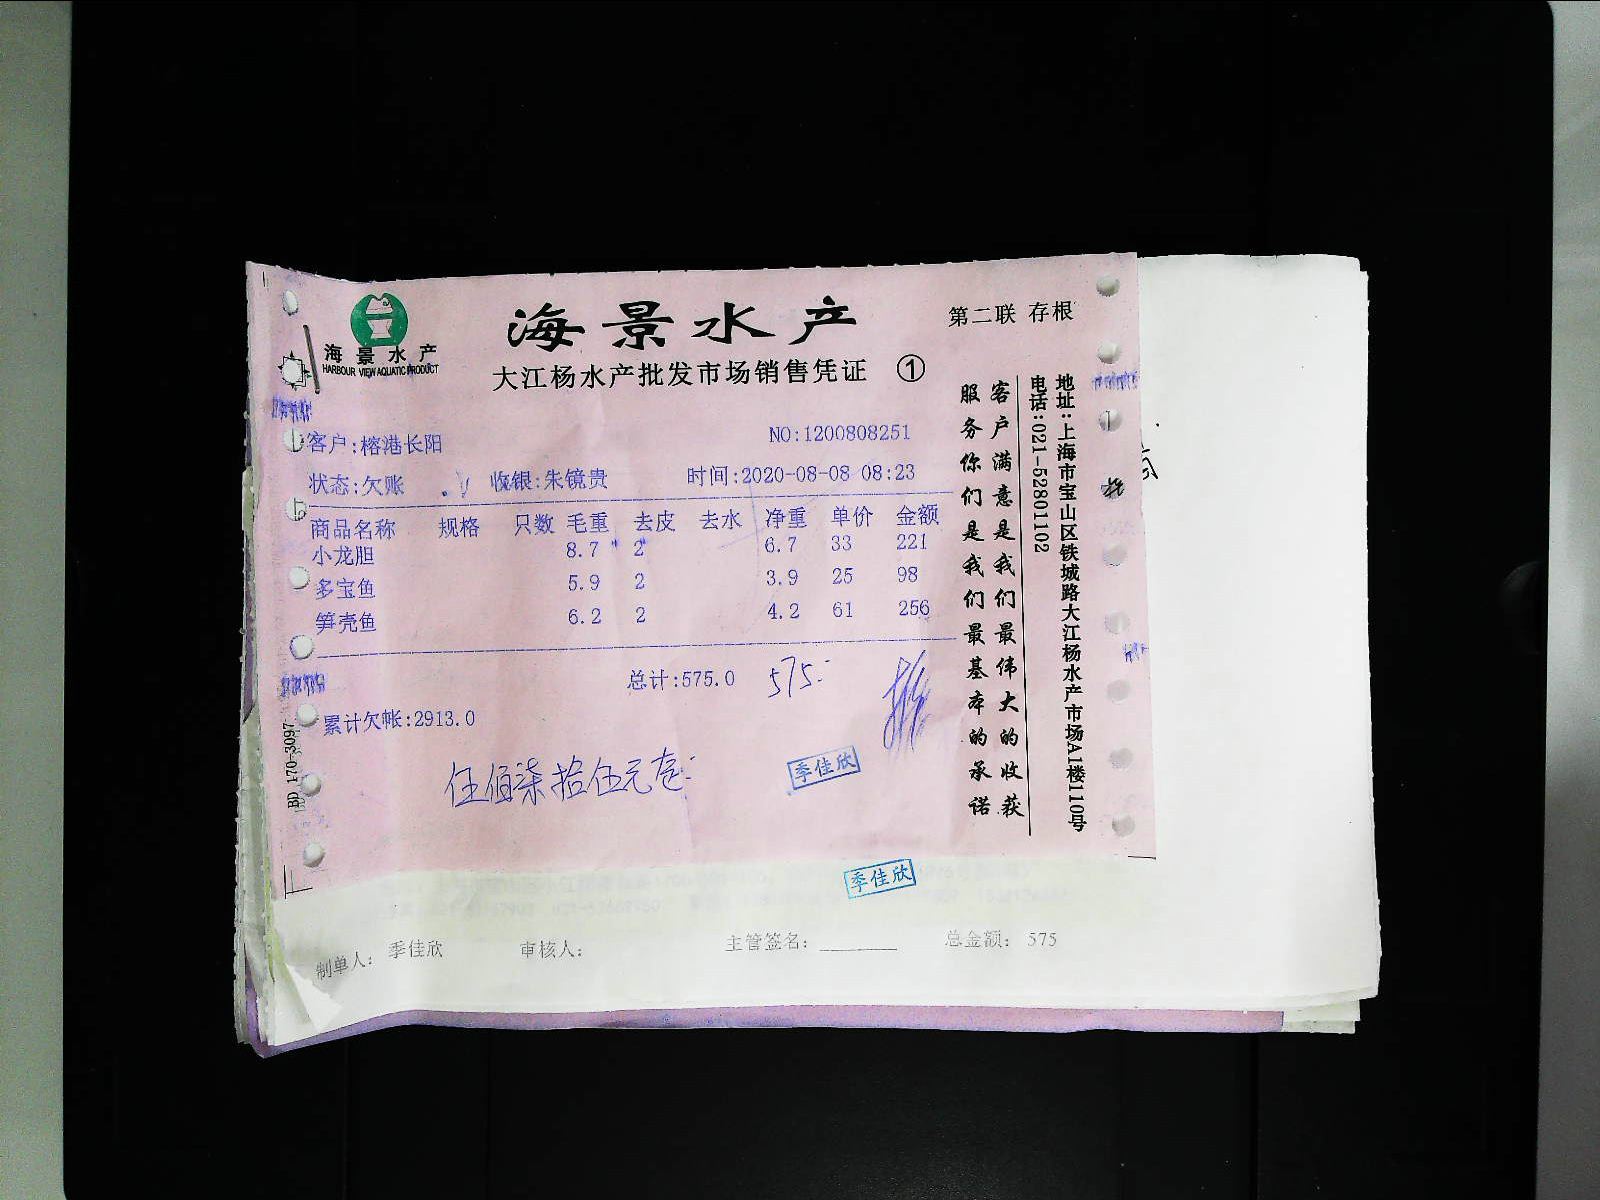 海景水产
HARBOUR VIEW AQUATIC PRODUCT
海景水产
第二联 存根
大江杨水产批发市场销售凭证 ①
客户:榕港长阳
NO:1200808251
状态:欠账 收银:朱镜贵 时间:2020-08-08 08:23
商品名称 规格 只数 毛重 去皮 去水 净重 单价 金额
小龙胆 8.7 2 6.7 33 221
多宝鱼 5.9 2 3.9 25 98
笋壳鱼 6.2 2 4.2 61 256
总计:575.0 575.
累计欠帐:2913.0
伍佰柒拾伍元
季佳欣
客户满意是我们最伟大的收获
服务你们是我们最基本的承诺
地址:上海市宝山区铁城路大江杨水产市场A1楼110号
电话:021-52801102
BD 170-3097
季佳欣
制单人: 季佳欣 审核人: 主管签名: 总金额: 575